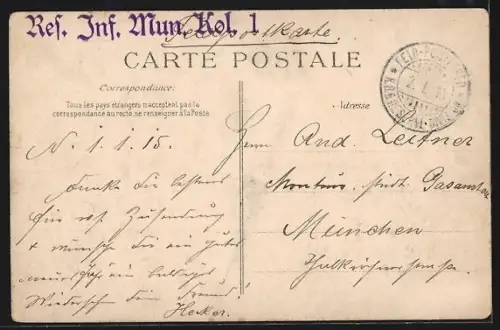 Res. Inf. Mun. Kol. 1
Feldpostkarte.
CARTE POSTALE
Correspondance:
Tous les pays étrangers n'acceptent pas la
correspondance au recto, se renseigner à la Poste
Adresse
N. 1.1.15.
danke dir bestens
für Zusendung
+ wünsche dir ein gutes
neues Jahr ein baldiges
Wiedersehn dein Freund!
Hecker.
Herrn And. Leitner
Monteur, städt. Gasanstalt
München
Thalkirchnerstrasse.